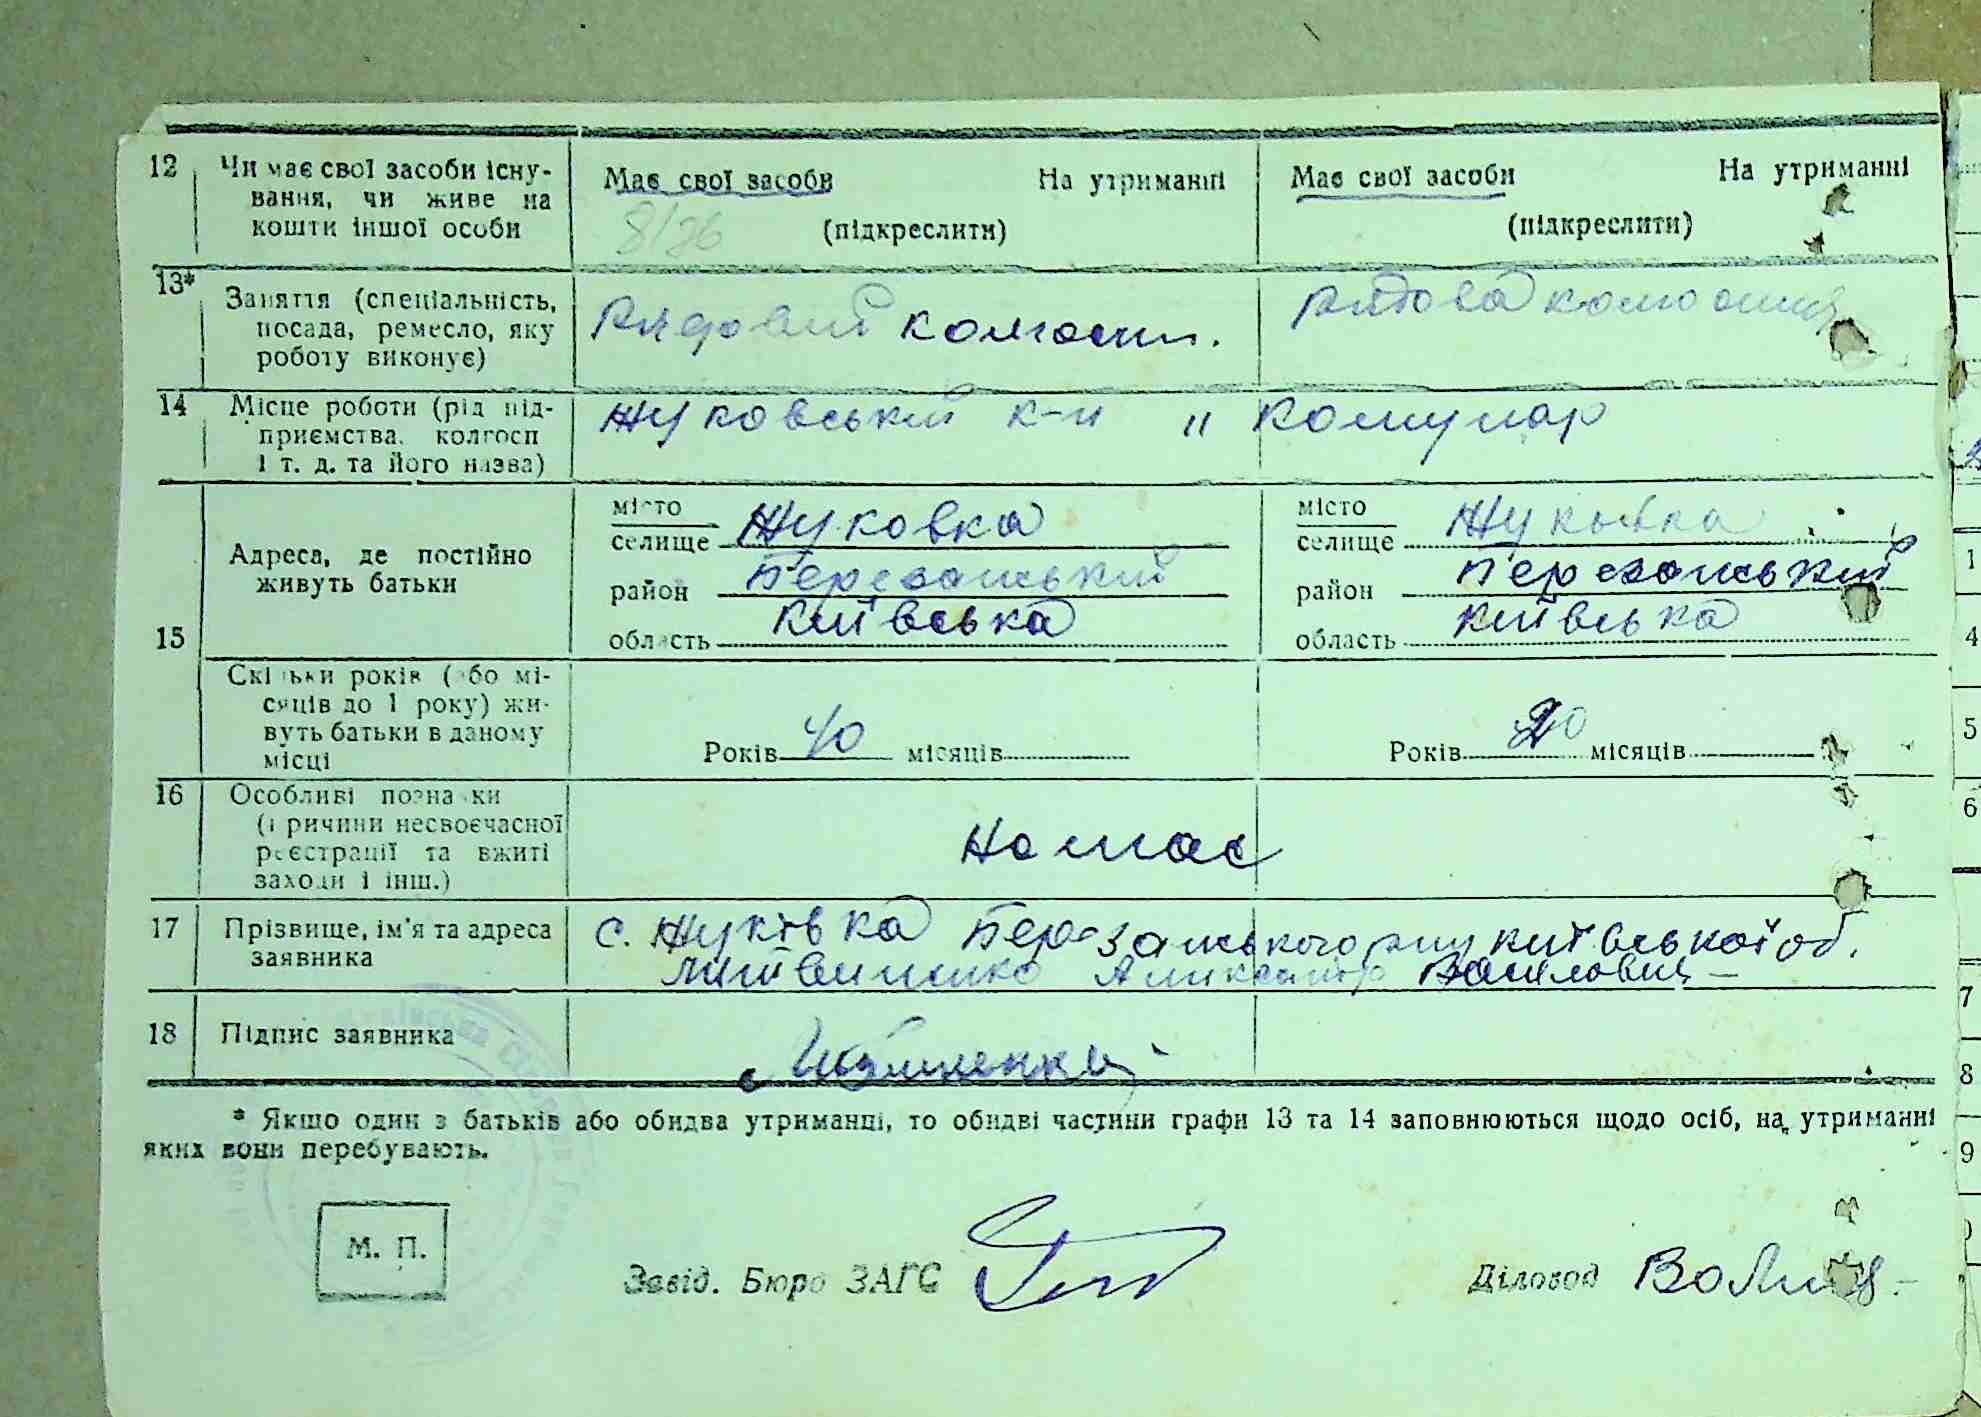 12 Чи має свої засоби існу- Має свої засоби На утриманні Має свої засоби На утриманні
вання, чи живе на
кошти іншої особи 8/26 (підкреслити) (підкреслити)
13* Заняття (спеціальність,
посада, ремесло, яку Рядовий колгосп. Рядова
роботу виконує)
14 Місце роботи (рід під- Жуковський к-п "Комунар
приємства, колгосп
і т. д. та його назва)
місто місто
селище Жуковка селище Жуковка
Адреса, де постійно
живуть батьки район Березанський район Березанський
15 область Київська область Київська
Скільки років (або мі-
сяців до 1 року) жи-
вуть батьки в даному Років 40 місяців Років 20 місяців
місці
16 Особливі познаки
(причини несвоєчасної
реєстрації та вжиті Немає
заходи і інш.)
17 Прізвище, ім'я та адреса с. Жуківка Березанського р-ну Київської об.
заявника Литвиненко Александр Василович
18 Підпис заявника
* Якщо один з батьків або обидва утриманці, то обидві частини графи 13 та 14 заповнюються щодо осіб, на утриманні
яких вони перебувають.
М. П.
Завід. Бюро ЗАГС Діловод